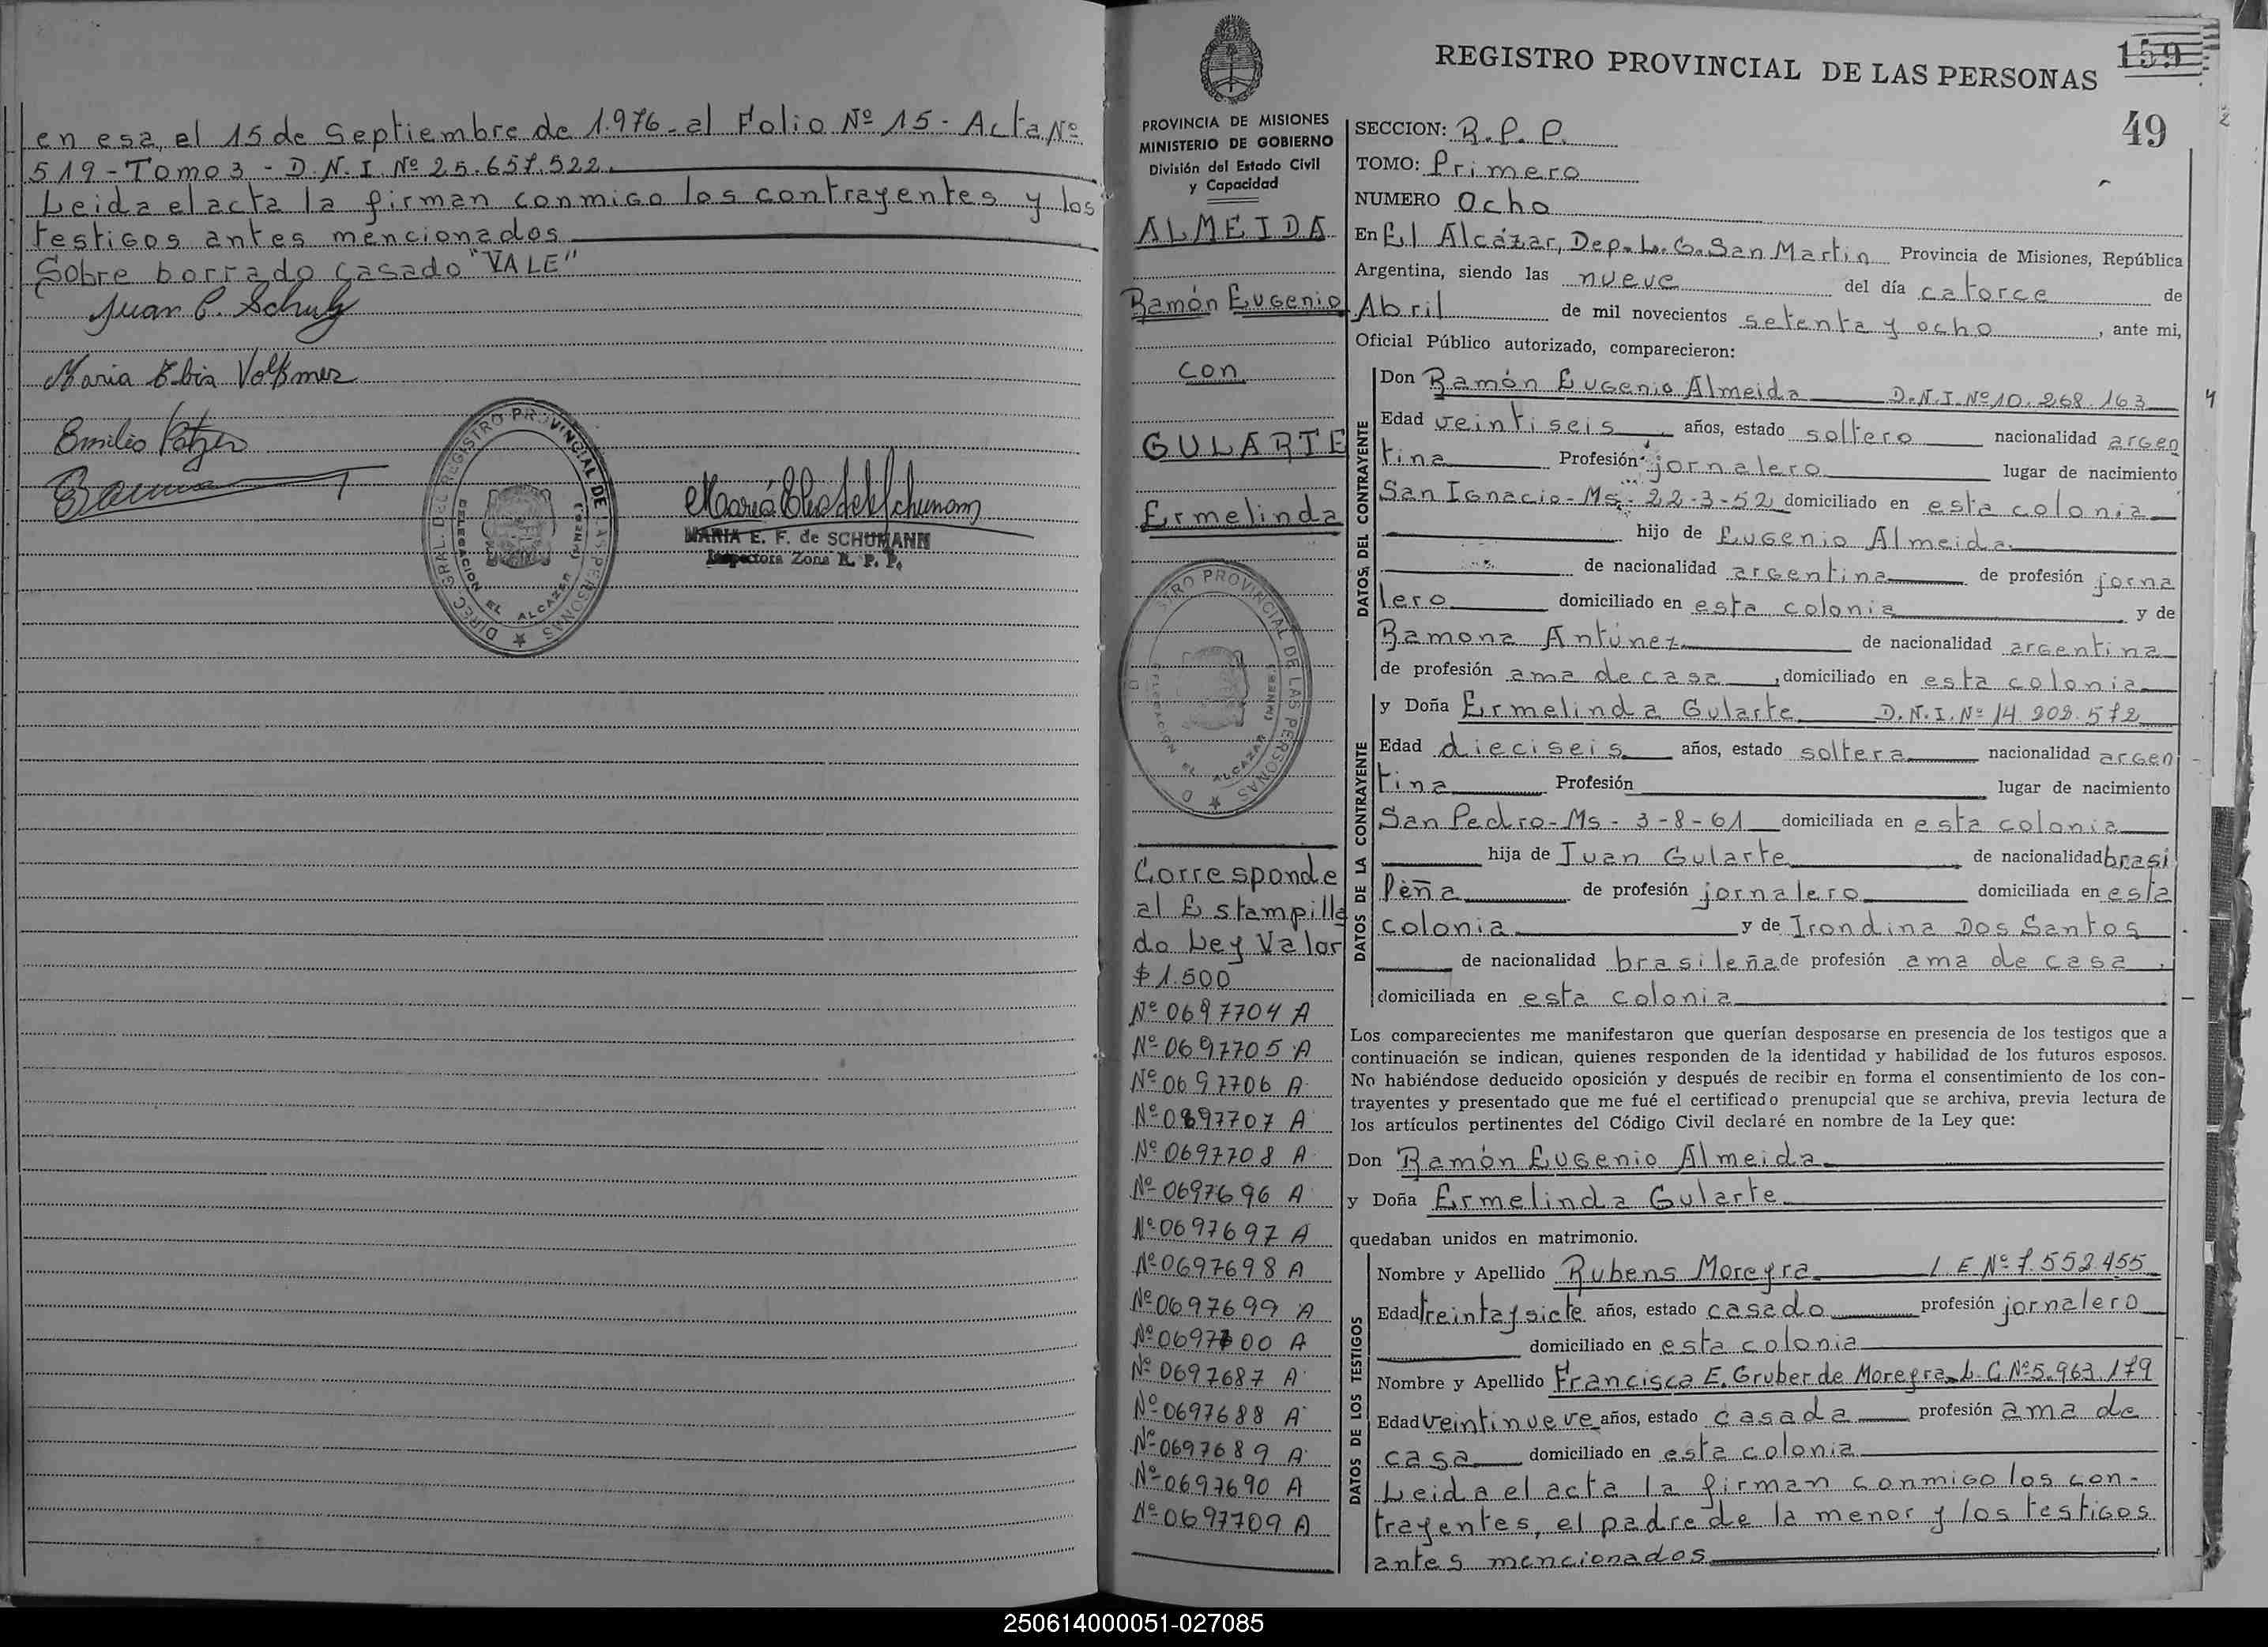 en esa, el 15 de Septiembre de 1.976 - al Folio Nº 15 - Acta Nº
519 - Tomo 3 - D.N.I. Nº 25.657.522.
Leida el acta la firman conmigo los contrayentes y los
testigos antes mencionados
Sobre borrado casado "VALE"
Juan C. Schulz
Maria Volkmer
Emilio
DIREC. GRAL. DEL REGISTRO PROVINCIAL DE LAS PERSONAS
DELEGACION EL ALCAZAR (MISIONES)
MARIA E. F. de SCHUMANN
Inspectora Zona R. P. P.
REGISTRO PROVINCIAL DE LAS PERSONAS
159
49
PROVINCIA DE MISIONES
MINISTERIO DE GOBIERNO
División del Estado Civil
y Capacidad
ALMEIDA
Ramón Eugenio
con
GULARTE
Ermelinda
REGISTRO PROVINCIAL DE LAS PERSONAS
DELEGACION EL ALCAZAR (MISIONES)
Corresponde
al Estampilla
do Ley Valor
$ 1.500
Nº 0697704 A
Nº 0697705 A
Nº 0697706 A
Nº 0697707 A
Nº 0697708 A
Nº 0697696 A
Nº 0697697 A
Nº 0697698 A
Nº 0697699 A
Nº 0697700 A
Nº 0697687 A
Nº 0697688 A
Nº 0697689 A
Nº 0697690 A
Nº 0697709 A
SECCION: R.P.P.
TOMO: Primero
NUMERO Ocho
En El Alcázar, Dep. L. G. San Martin Provincia de Misiones, República
Argentina, siendo las nueve del día catorce de
Abril de mil novecientos setenta y ocho, ante mi,
Oficial Público autorizado, comparecieron:
DATOS DEL CONTRAYENTE
Don Ramón Eugenio Almeida D.N.I. Nº 10.268.163
Edad veintiseis años, estado soltero nacionalidad argen
tina Profesión jornalero lugar de nacimiento
San Ignacio - Ms - 22-3-52 domiciliado en esta colonia
hijo de Eugenio Almeida
de nacionalidad argentina de profesión jorna
lero domiciliado en esta colonia y de
Ramona Antúnez de nacionalidad argentina
de profesión ama de casa, domiciliado en esta colonia
DATOS DE LA CONTRAYENTE
y Doña Ermelinda Gularte D.N.I. Nº 14.208.572
Edad dieciseis años, estado soltera nacionalidad argen
tina Profesión lugar de nacimiento
San Pedro - Ms - 3-8-61 domiciliada en esta colonia
hija de Juan Gularte de nacionalidad brasi
leña de profesión jornalero domiciliada en esta
colonia y de Irondina Dos Santos
de nacionalidad brasileña de profesión ama de casa
domiciliada en esta colonia
Los comparecientes me manifestaron que querían desposarse en presencia de los testigos que a
continuación se indican, quienes responden de la identidad y habilidad de los futuros esposos.
No habiéndose deducido oposición y después de recibir en forma el consentimiento de los con-
trayentes y presentado que me fué el certificado prenupcial que se archiva, previa lectura de
los artículos pertinentes del Código Civil declaré en nombre de la Ley que:
Don Ramón Eugenio Almeida
y Doña Ermelinda Gularte
quedaban unidos en matrimonio.
DATOS DE LOS TESTIGOS
Nombre y Apellido Rubens Moreyra L E Nº 7.552.455
Edad treinta y siete años, estado casado profesión jornalero
domiciliado en esta colonia
Nombre y Apellido Francisca E. Gruber de Moreyra L.C. Nº 5.963.179
Edad veintinueve años, estado casada profesión ama de
casa domiciliado en esta colonia
Leida el acta la firman conmigo los con-
trayentes, el padre de la menor y los testigos
antes mencionados
250614000051-027085